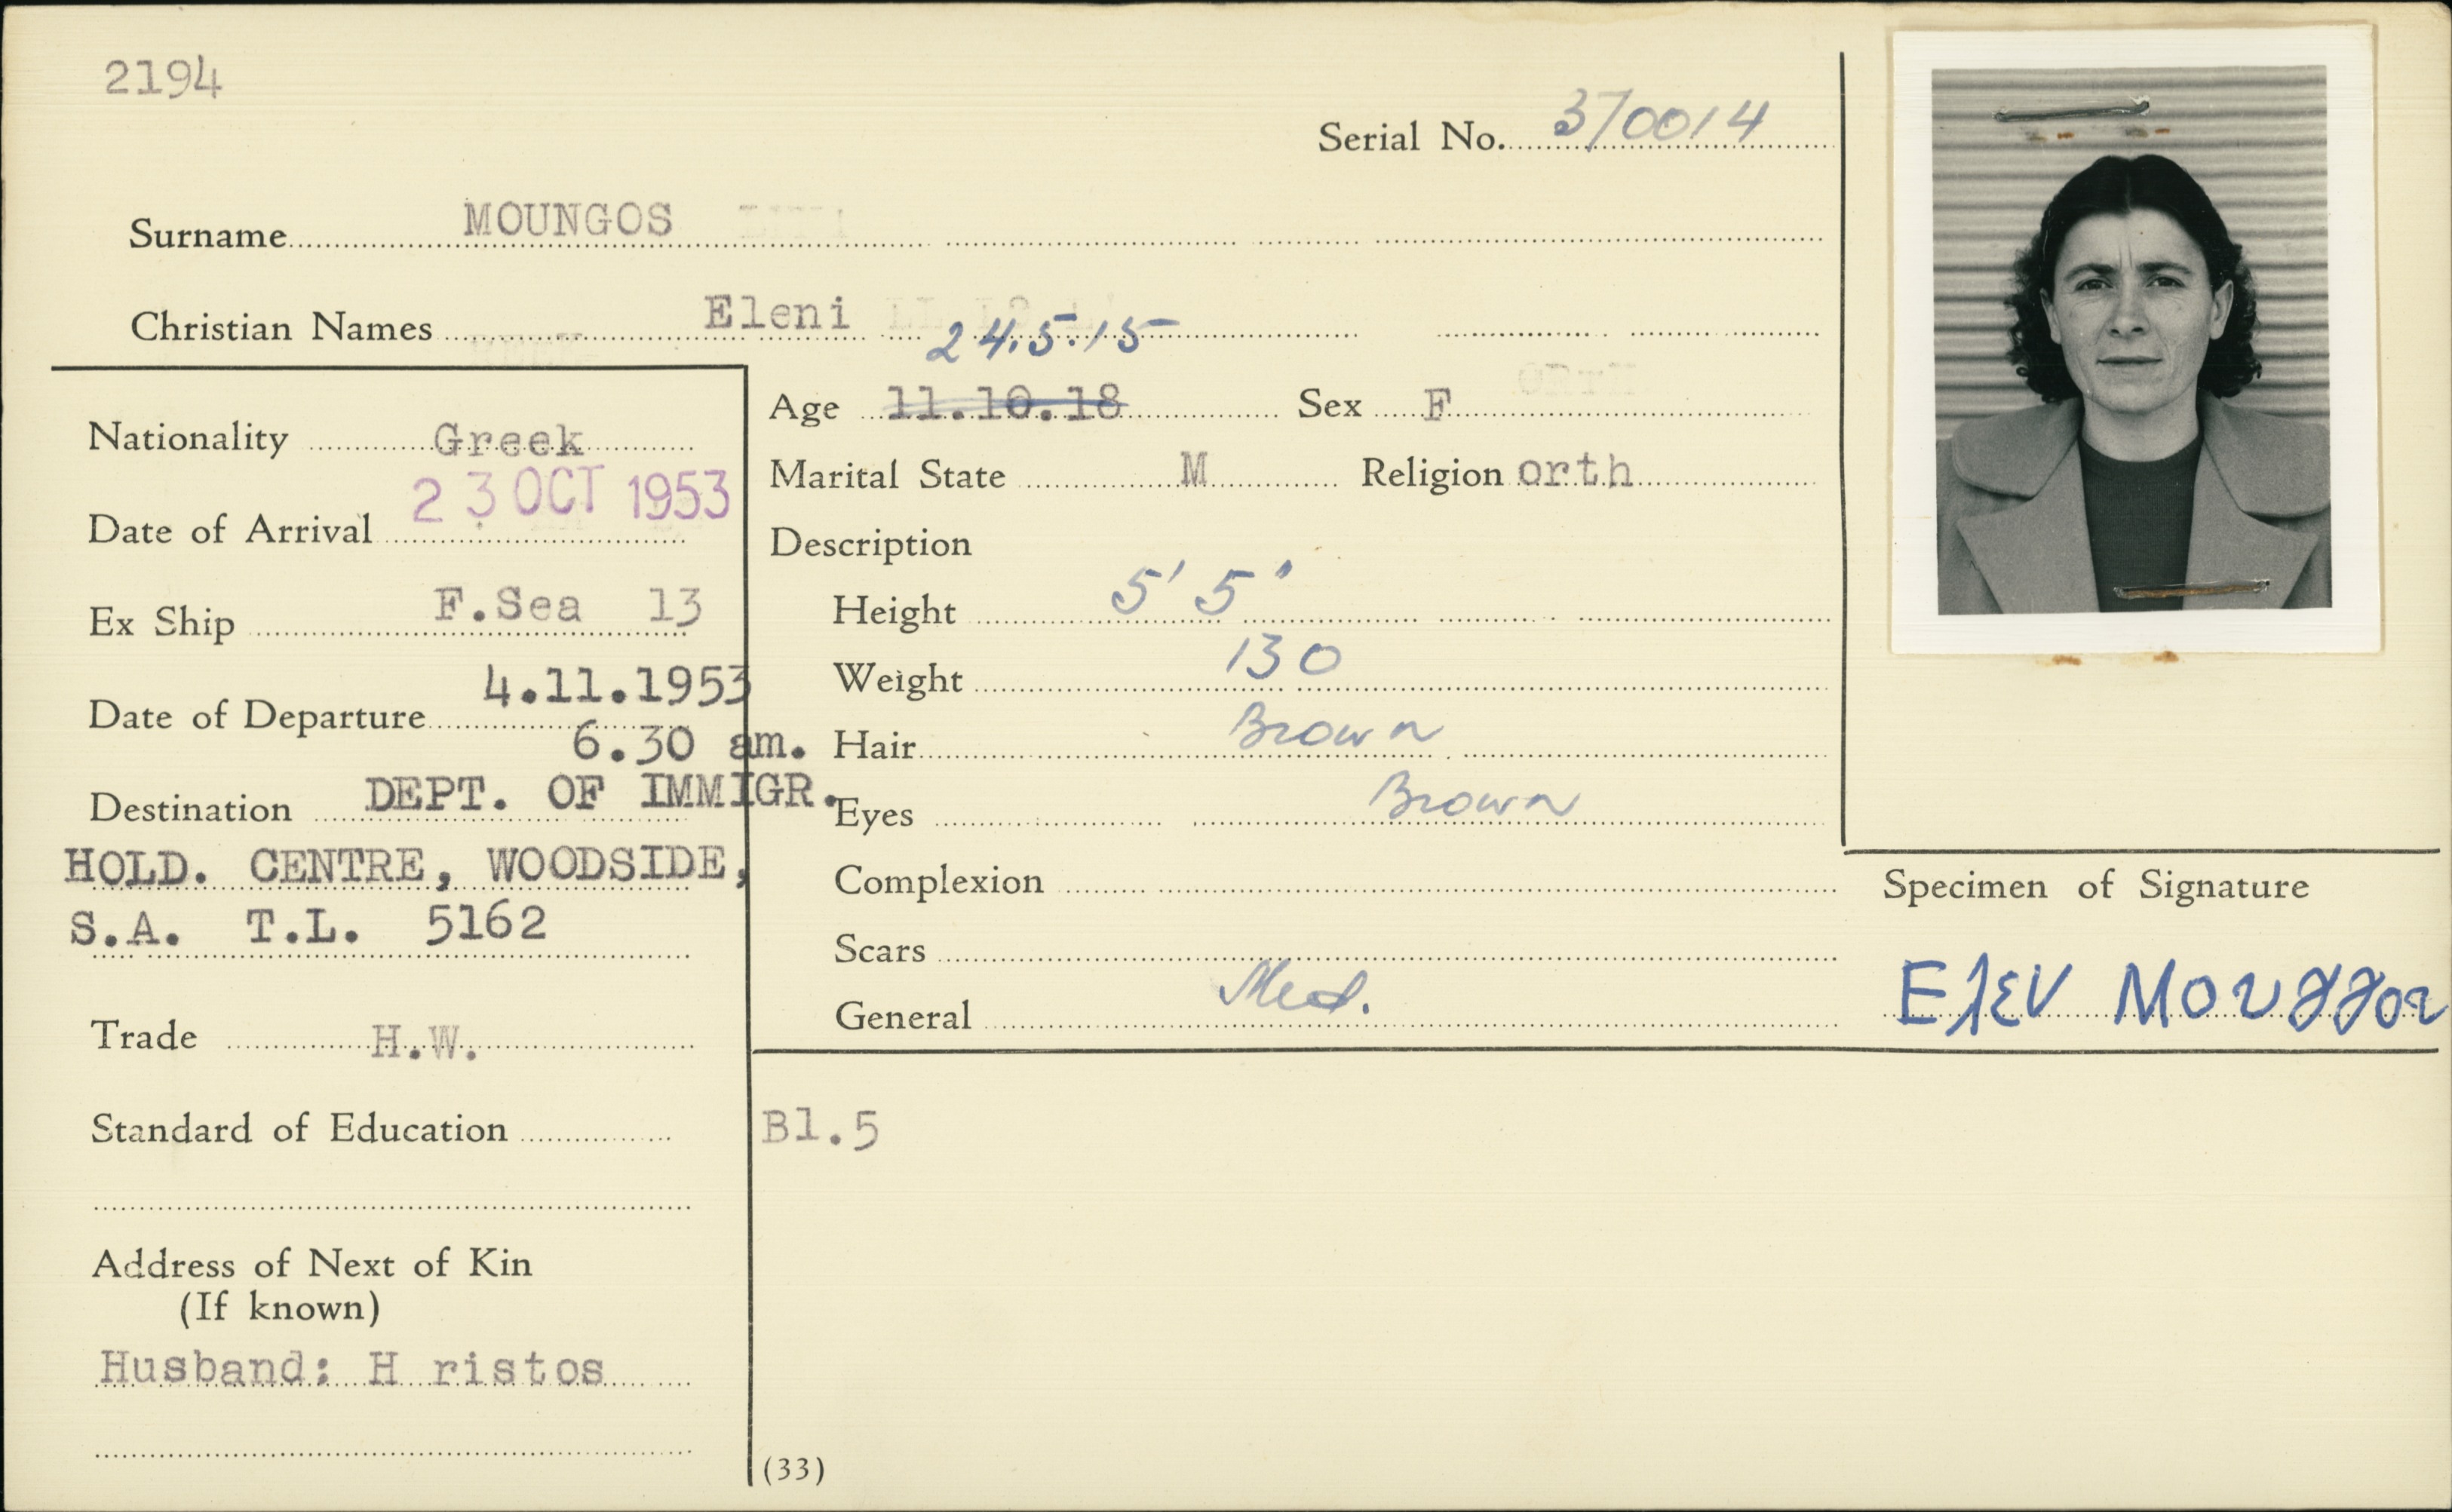 2194
Serial No. 370014
Surname MOUNGOS
Christian Names Eleni
24.5.15
Age 11.10.18 Sex F
Nationality Greek
Marital State M Religion orth
Date of Arrival 23 OCT 1953
Description
Height 5' 5"
Ex Ship F.Sea 13
Weight 130
Date of Departure 4.11.1953
6.30 am.
Hair Brown
Destination DEPT. OF IMMIGR.
HOLD. CENTRE, WOODSIDE,
S.A. T.L. 5162
Eyes Brown
Complexion
Scars
General Med.
Specimen of Signature
Ελεν Μουγγου
Trade H.W.
Standard of Education
Bl.5
Address of Next of Kin
(If known)
Husband: H ristos
(33)